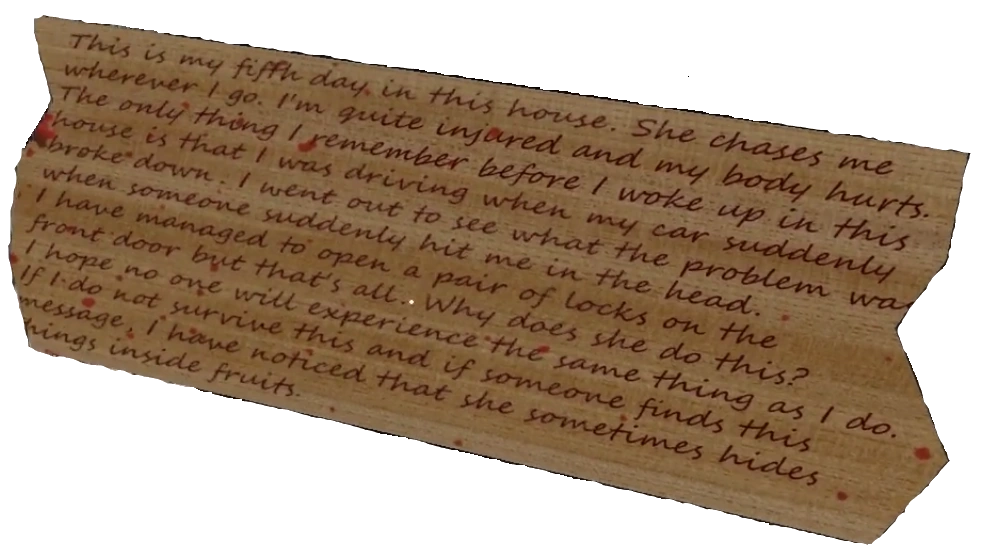 This is my fifth day in this house. She chases me
wherever I go. I'm quite injured and my body hurts.
The only thing I remember before I woke up in this
house is that I was driving when my car suddenly
broke down. I went out to see what the problem was
when someone suddenly hit me in the head.
I have managed to open a pair of locks on the
front door but that's all.. Why does she do this?
I hope no one will experience the same thing as I do.
If I do not survive this and if someone finds this
message, I have noticed that she sometimes hides
hings inside fruits.